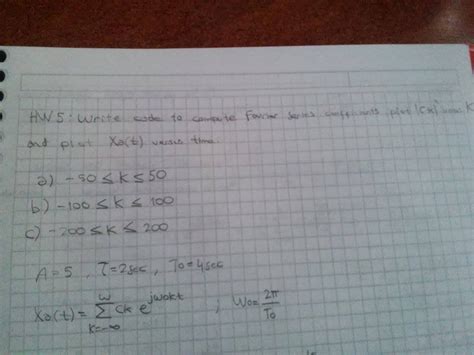 HW5: Write code to compute Fourier Series coefficients, plot |Ck|
and plot Xa(t) versus time.
a) -50 ≤ k ≤ 50
b) -100 ≤ k ≤ 100
c) -200 ≤ k ≤ 200
A=5, τ=2sec, To=4sec
Xa(t) = ∑ k=-∞ ∞ Ck e^jwokt ; Wo = 2π/To